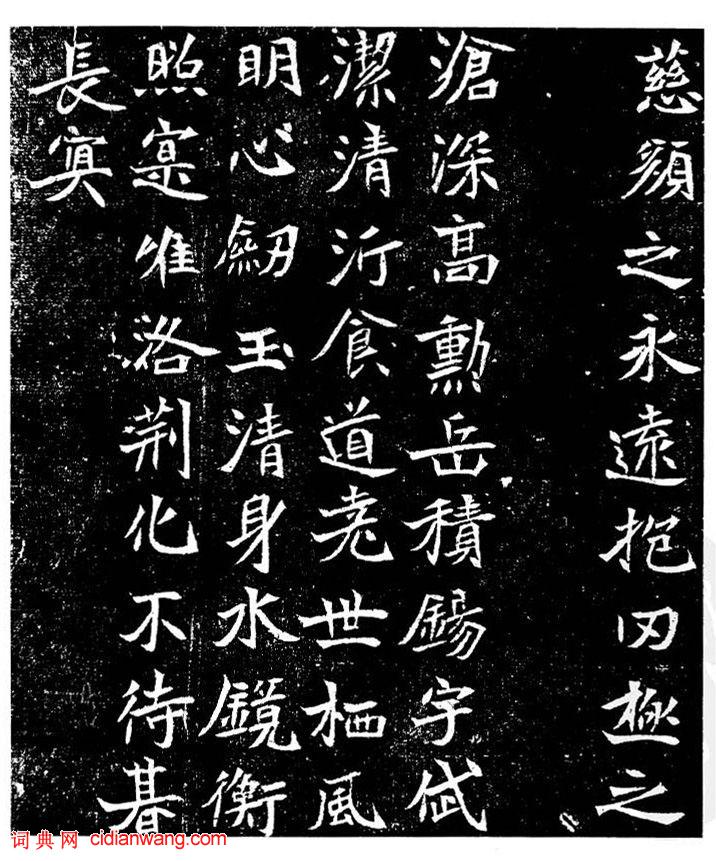 慈顔之永遠抱罔極之
滄深高勳岳積錫宇
潔清沂食道尭世栖風
明心劒玉清身水鏡衡
照寔唯洛荊化不待朞
長
词典网 cidianwang.com